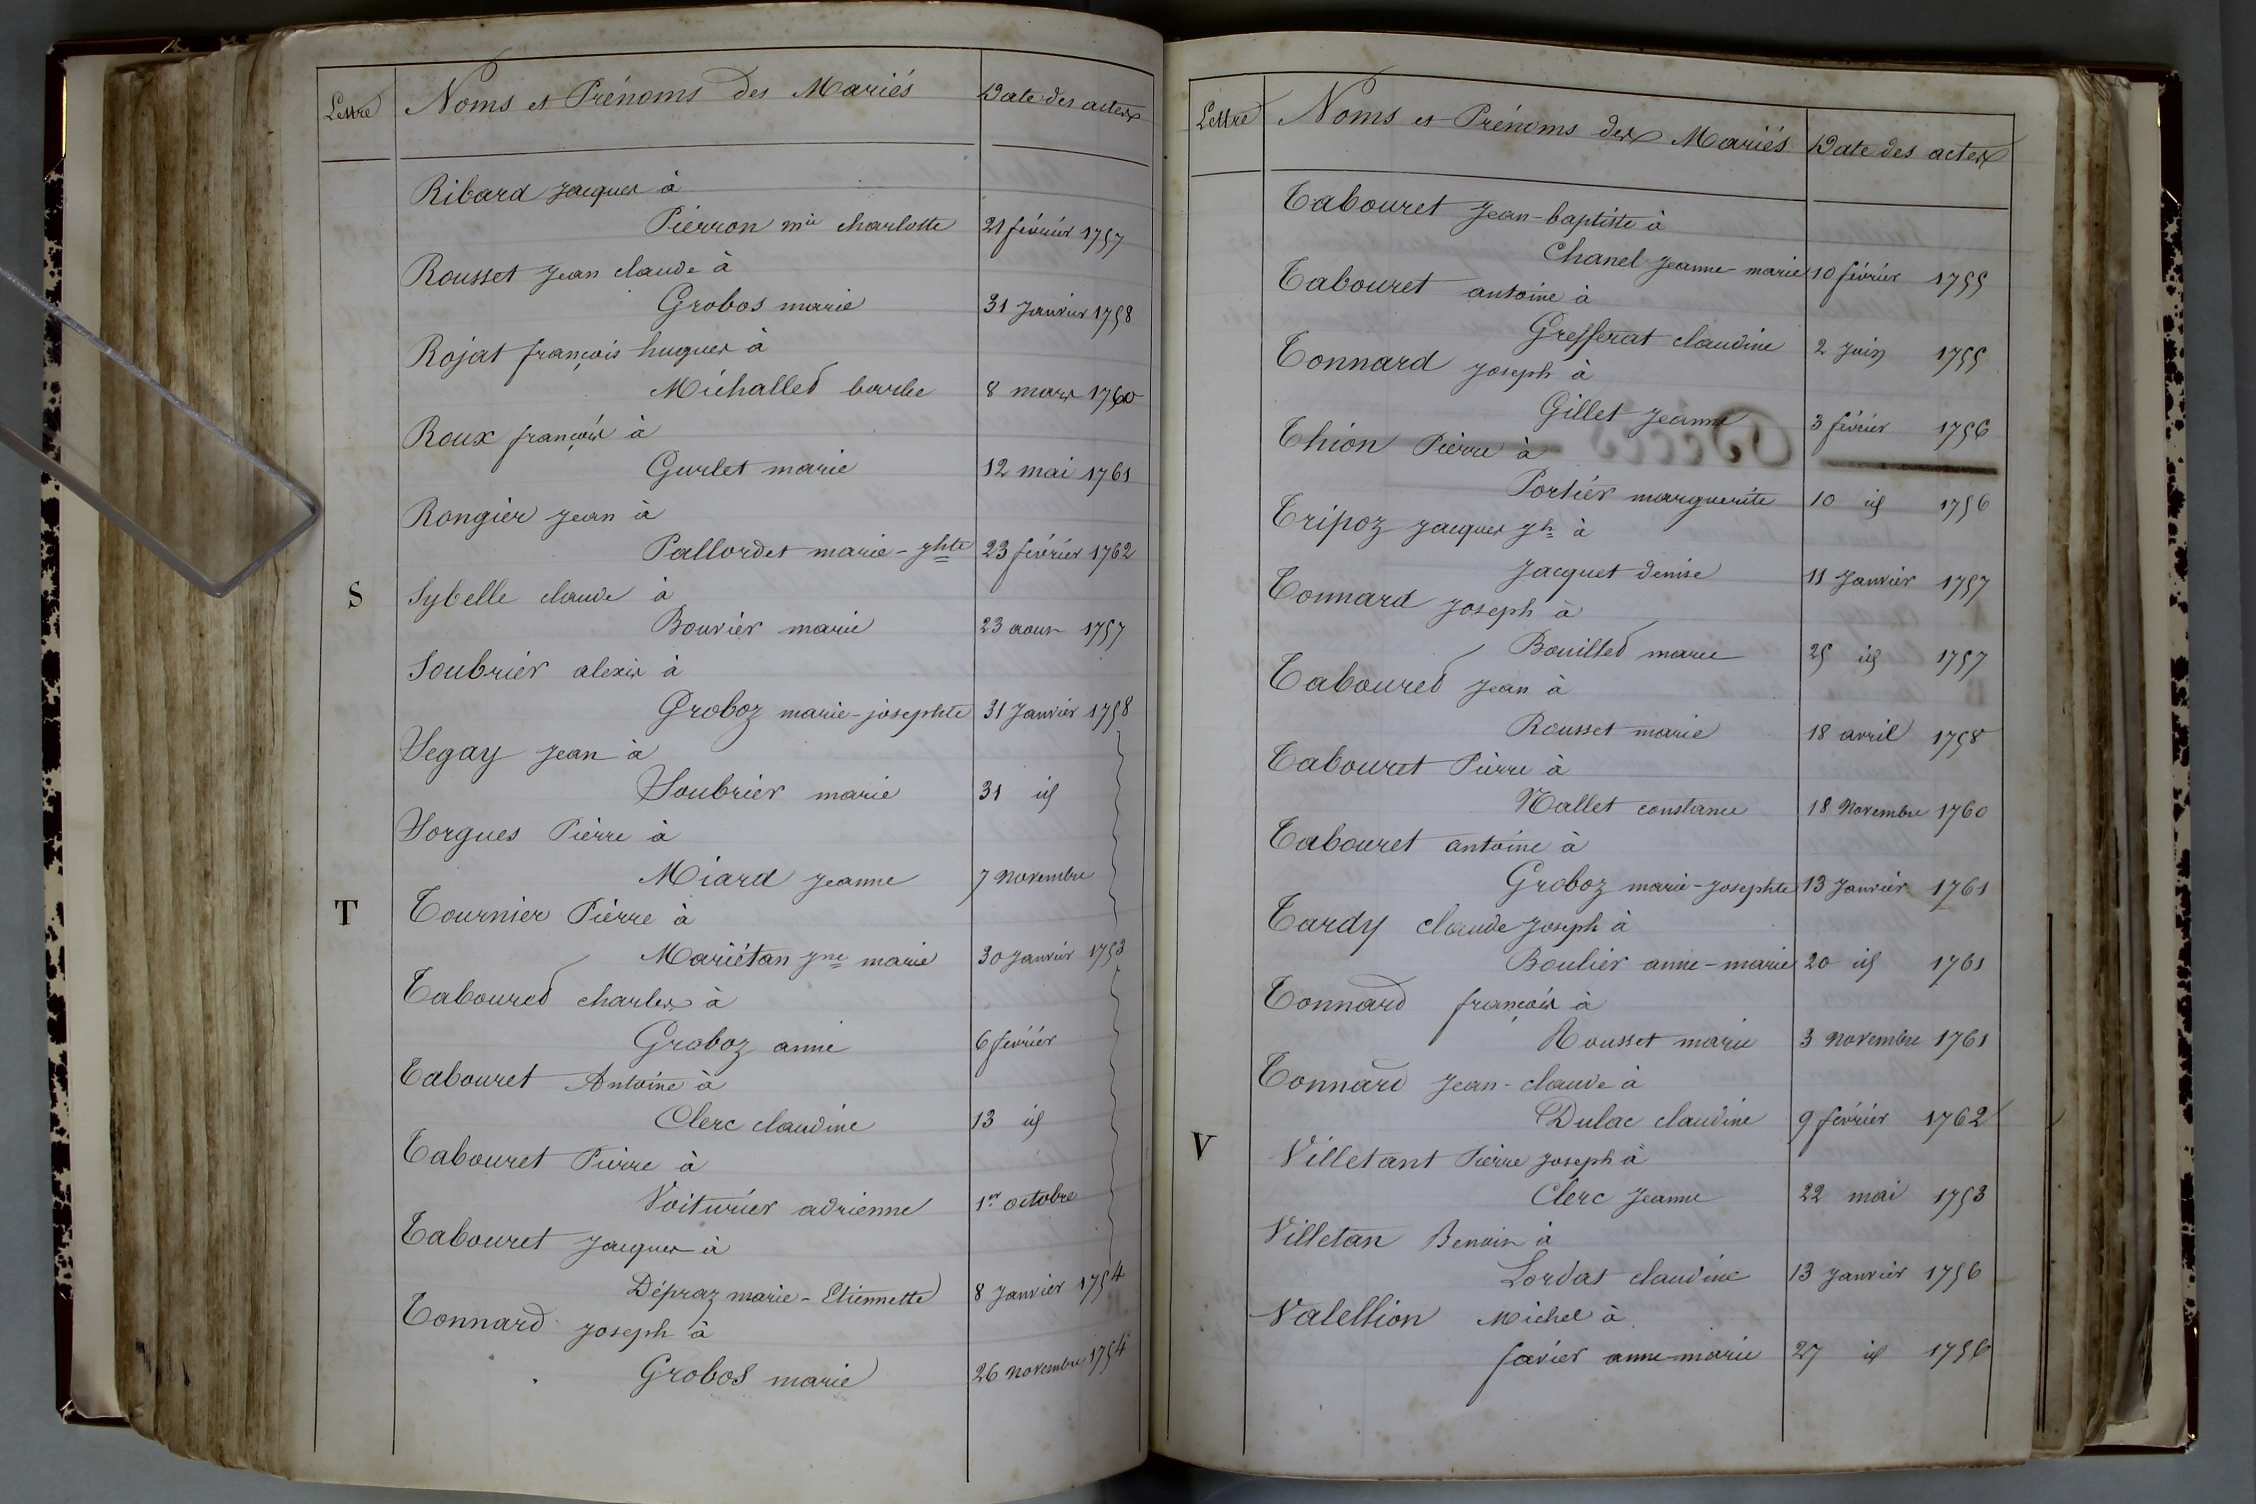 Lettre Noms et Prénoms des Mariés Date des actes
Ribard Jacques à
Pierron mie charlotte 21 février 1757
Rousset Jean claude à
Grobos marie 31 Janvier 1758
Rojat françois hugues à
Michallet barbe 8 mars 1760
Roux françois à
Gurlet marie 12 mai 1761
Rongier Jean à
Pallordet marie-jhte 23 février 1762
S Sybelle claude à
Bouvier marie 23 aout 1757
Soubrier alexis à
Groboz marie-josephte 31 Janvier 1758
Segay Jean à
Soubrier marie 31 id
Sorgues Pierre à
Miard Jeanne 7 novembre
T Tournier Pierre à
Mariétan Jne marie 30 Janvier 1753
Tabouret charles à
Groboz anne 6 février
Tabouret Antoine à
Clerc claudine 13 id
Tabouret Pierre à
Voiturier adrienne 1er octobre
Tabouret Jacques à
Dépraz marie-Etiennette 8 Janvier 1754
Tonnard Joseph à
Grobos marie 26 novembre 1754
Lettre Noms et Prénoms des Mariés Date des actes
Tabouret Jean-baptiste à
Chanel Jeanne marie 10 février 1755
Tabouret antoine à
Grefferat claudine 2 Juin 1755
Tonnard Joseph à
Gillet Jeanne 3 février 1756
Thion Pierre à
Portier marguerite 10 id 1756
Tripoz Jacques Jh à
Jacquet denise 11 Janvier 1757
Tonnard Joseph à
Bouillet marie 25 id 1757
Tabouret Jean à
Rousset marie 18 avril 1758
Tabouret Pierre à
Nallet constance 18 Novembre 1760
Tabouret antoine à
Groboz marie-Josephte 13 Janvier 1761
Tardy claude Joseph à
Boulier anne-marie 20 id 1761
Tonnard françois à
Rousset marie 3 novembre 1761
Tonnard Jean-claude à
Dulac claudine 9 février 1762
V Villetant Pierre Joseph à
Clerc Jeanne 22 mai 1753
Villetan Benoit à
Lordat claudine 13 Janvier 1756
Valettion Michel à
favier anne marie 27 id 1756